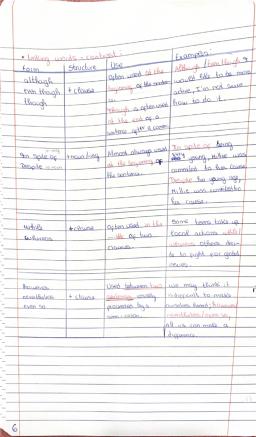 • Linking words - contrast:
Form
Structure
Use
Examples:
although
even though
though
+ clause
Often used at the
beginning of the sentence
Though is often used
at the end of a
sentence after a comma.
Although / Even though I
would like to be more
active, I'm not sure
how to do it.
In spite of
Despite
+ noun/ing
Almost always used
at the beginning of
the sentence.
In spite of being
young, Millie was
committed to her cause.
Despite her young age,
Millie was committed to
her cause.
while
whereas
+ clause
Often used in the
of two
clauses.
Some teens take up
local actions while/
whereas others
to fight for global
However
nevertheless
even so
+ clause
Used between two
usually
preceded by a
We may think it
is difficult to make
ourselves heard; however/
nevertheless/even so,
all us can make a
difference.
6